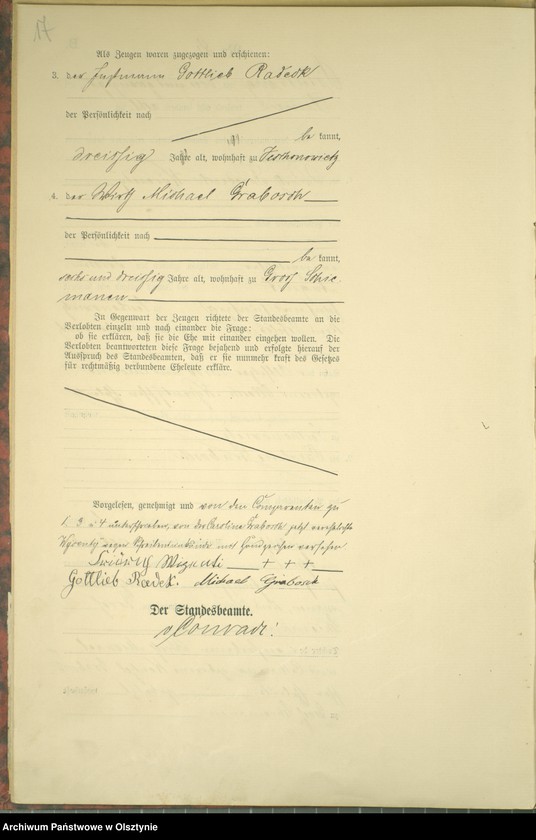 17
Als Zeugen waren zugezogen und erschienen:
3. der Instmann Gottlieb Radeck
der Persönlichkeit nach
be kannt,
dreißig Jahre alt, wohnhaft zu
4. der Wirth Michael Grabosch
der Persönlichkeit nach
be kannt,
sechs und dreißig Jahre alt, wohnhaft zu Groß Schie-
manen
In Gegenwart der Zeugen richtete der Standesbeamte an die
Verlobten einzeln und nach einander die Frage:
ob sie erklären, daß sie die Ehe mit einander eingehen wollen. Die
Verlobten beantworteten diese Frage bejahend und erfolgte hierauf der
Ausspruch des Standesbeamten, daß er sie nunmehr kraft des Gesetzes
für rechtmäßig verbundene Eheleute erkläre.
Vorgelesen, genehmigt und von den Comparenten zu
1, 3 u 4 unterschrieben, von der Caroline Grabosch jetzt verehelichte
wegen Schreibensunkunde mit Handzeichen versehen
+ + +
Gottlieb Radek. Michael Grabosch
Der Standesbeamte.
v Conradi.
Archiwum Państwowe w Olsztynie